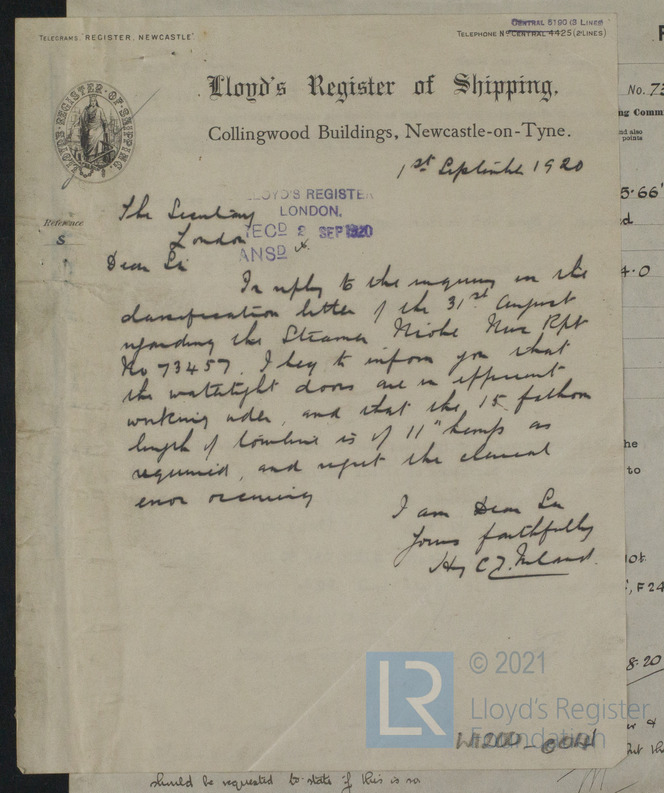 TELEGRAMS "REGISTER, NEWCASTLE"
CENTRAL 5190 (3 LINES)
TELEPHONE No. CENTRAL 4425 (2 LINES)
Lloyd's Register of Shipping,
Collingwood Buildings, Newcastle-on-Tyne.
LLOYD'S REGISTER OF SHIPPING.
1st September 1920
LLOYD'S REGISTER
LONDON.
RECD 2 SEP 1920
ANSD
Reference
S
The Secretary
London
Dear Sir
In reply to the inquiry in the
classification letter of the 31st August
regarding the Steamer Niobe Nwc Rpt
No 73457. I beg to inform you that
the watertight doors are in efficient
working order, and that the 15 fathom
length of towline is of 11" hemp as
required, and regret the clerical
error occurring
I am Dear Sir
Yours faithfully
Hy C
© 2021
LR
Lloyd's Register
Foundation
W1200-0014
should be requested to state if this is so
No. 73
ng Comm
nd also
points
5.66'
d
4.0
he
to
F24
8.20